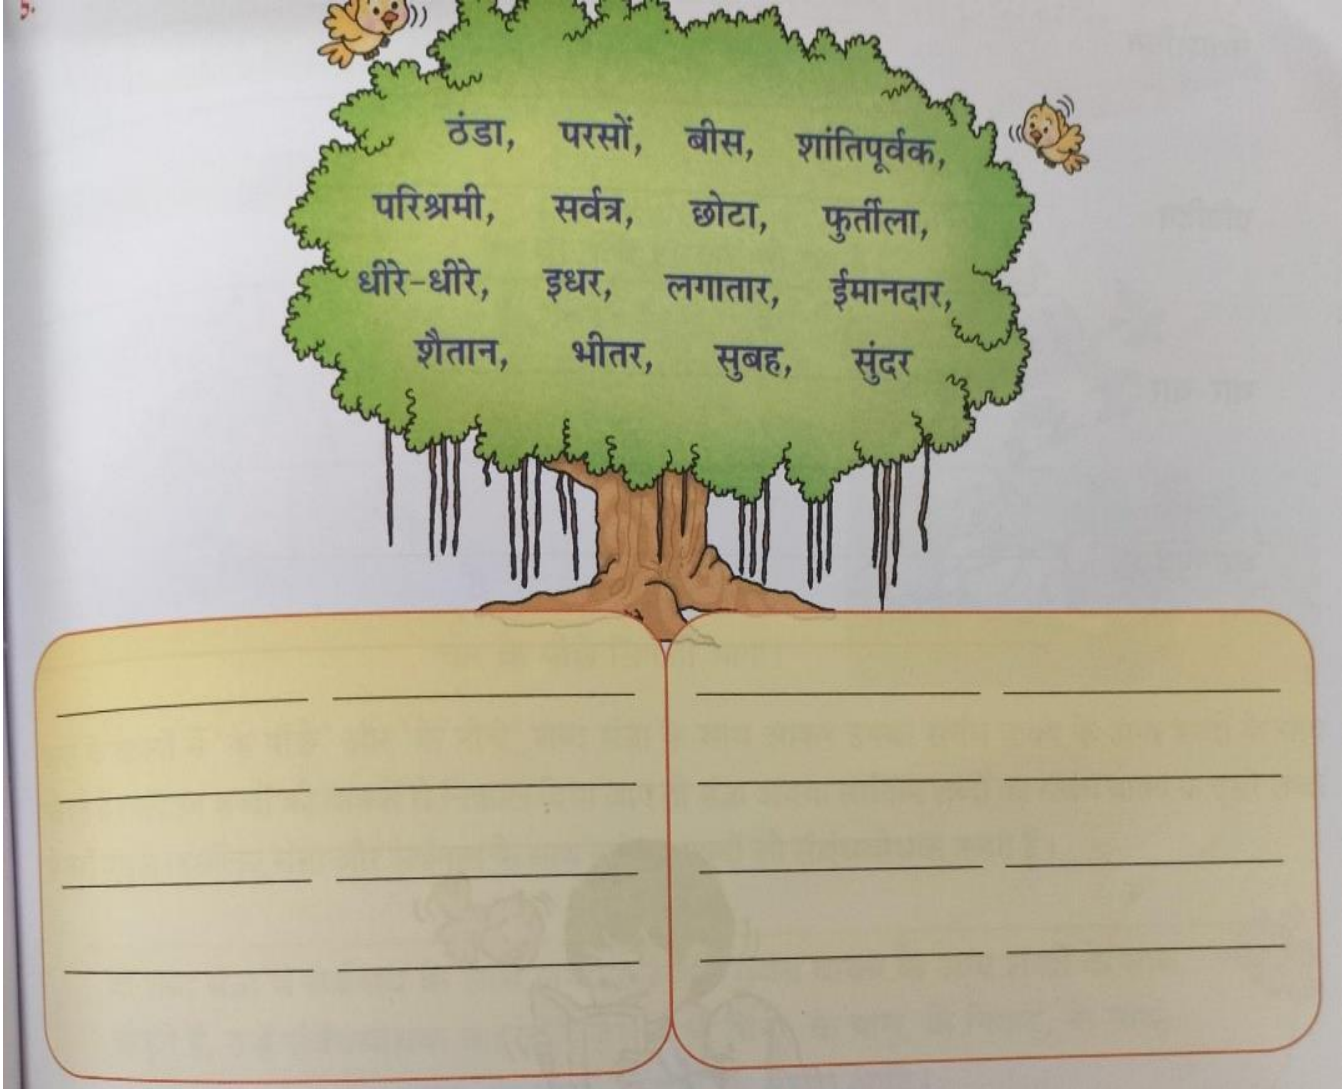 ५.
ठंडा, परसों, बीस, शांतिपूर्वक,
परिश्रमी, सर्वत्र, छोटा, फुर्तीला,
धीरे-धीरे, इधर, लगातार, ईमानदार,
शैतान, भीतर, सुबह, सुंदर